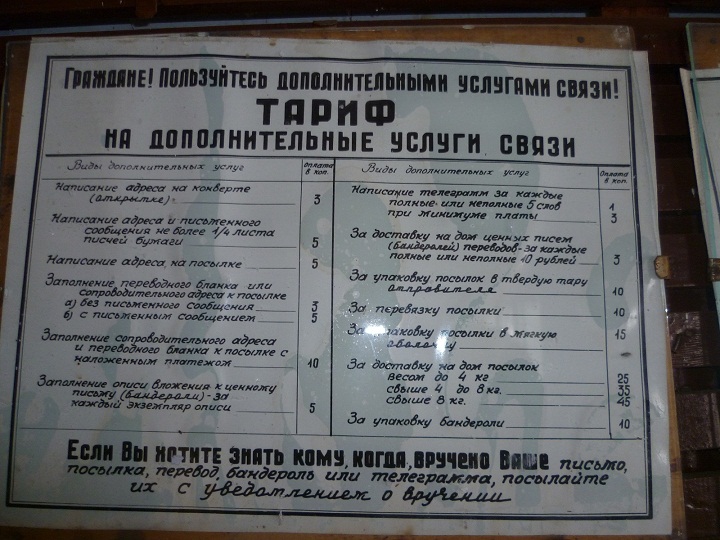 Граждане! Пользуйтесь дополнительными услугами связи!
ТАРИФ
НА ДОПОЛНИТЕЛЬНЫЕ УСЛУГИ СВЯЗИ
Виды дополнительных услуг Оплата в коп.
Написание адреса на конверте
(открытке) 3
Написание адреса и письменного
сообщения не более 1/4 листа
писчей бумаги 5
Написание адреса на посылке 5
Заполнение переводного бланка или
сопроводительного адреса к посылке
а) без письменного сообщения 3
б) с письменным сообщением 5
Заполнение сопроводительного адреса
и переводного бланка к посылке с
наложенным платежом 10
Заполнение описи вложения к ценному
письму (бандероли) - за
каждый экземпляр описи 5
Виды дополнительных услуг Оплата в коп.
Написание телеграмм за каждые
полные или неполные 5 слов 1
при минимуме платы 3
За доставку на дом ценных писем
(бандеролей) переводов - за каждые
полные или неполные 10 рублей 3
За упаковку посылок в твердую тару
отправителя 10
За перевязку посылки 10
За упаковку посылки в мягкую 15
оболочку
За доставку на дом посылок
весом до 4 кг 25
свыше 4 до 8 кг. 35
свыше 8 кг. 45
За упаковку бандероли 10
Если Вы хотите знать кому, когда, вручено Ваше письмо,
посылка, перевод, бандероль или телеграмма, посылайте
их с уведомлением о вручении